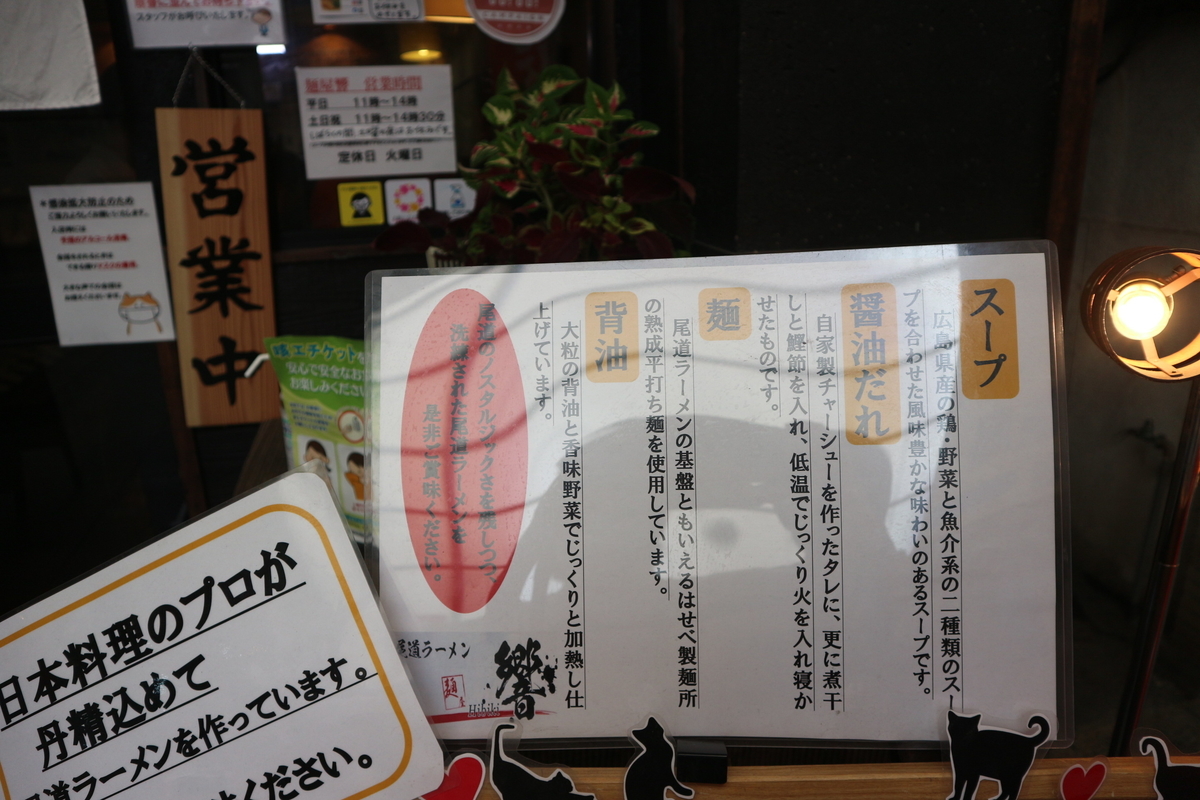 スタッフがお呼びいたします。
営業中
麺屋響 営業時間
平日 11時〜14時
土日祝 11時〜14時30分
定休日 火曜日
咳エチケットを
安心で安全なお
お楽しみくださ
スープ
広島県産の鶏・野菜と魚介系の二種類のスー
プを合わせた風味豊かな味わいのあるスープです。
醤油だれ
自家製チャーシューを作ったタレに、更に煮干
しと鰹節を入れ、低温でじっくり火を入れ寝か
せたものです。
麺
尾道ラーメンの基盤ともいえるはせべ製麺所
の熟成平打ち麺を使用しています。
背油
大粒の背油と香味野菜でじっくりと加熱し仕
上げています。
尾道のノスタルジックさを残しつつ、
洗練された尾道ラーメンを
是非ご賞味ください。
尾道ラーメン
麺屋
響
Hibiki
日本料理のプロが
丹精込めて
道ラーメンを作っています。
ください。